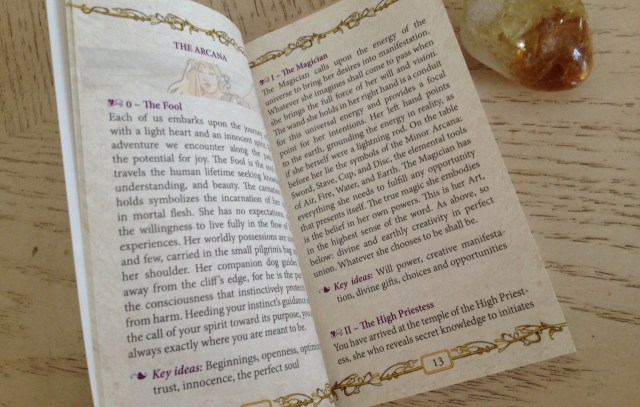 THE ARCANA
0 – The Fool
Each of us embarks upon the journey
with a light heart and an innocent
adventure we encounter along the
the potential for joy. The Fool is the
travels the human lifetime seeking
understanding, and beauty. The carnation
holds symbolizes the incarnation of her
in mortal flesh. She has no expectations,
the willingness to live fully in the flow of
experiences. Her worldly possessions are
and few, carried in the small pilgrim's bag
her shoulder. Her companion dog guides
away from the cliff's edge, for he is the
the consciousness that instinctively protects
from harm. Heeding your instinct's guidance
the call of your spirit toward its purpose, you
always exactly where you are meant to be.
Key ideas: Beginnings, openness, optimism
trust, innocence, the perfect soul
I – The Magician
The Magician calls upon the energy of the
universe to bring her desires into manifestation.
Whatever she imagines shall come to pass when
she brings the full force of her will and vision.
The wand she holds in her right hand is a conduit
for this universal energy and provides a focal
point for her intentions. Her left hand points
to the earth, grounding the energy in reality, as
if she herself were a lightning rod. On the table
before her lie the symbols of the Minor Arcana:
Sword, Stave, Cup, and Disc, the elemental tools
of Air, Fire, Water, and Earth. The Magician has
everything she needs to fulfill any opportunity
that presents itself. The true magic she embodies
is the belief in her own powers. This is her Art,
in the highest sense of the word. As above, so
below; divine and earthly creativity in perfect
union. Whatever she chooses to be shall be.
Key ideas: Will power, creative manifesta-
tion, divine gifts, choices and opportunities
II – The High Priestess
You have arrived at the temple of the High Priest-
ess, she who reveals secret knowledge to initiates
13